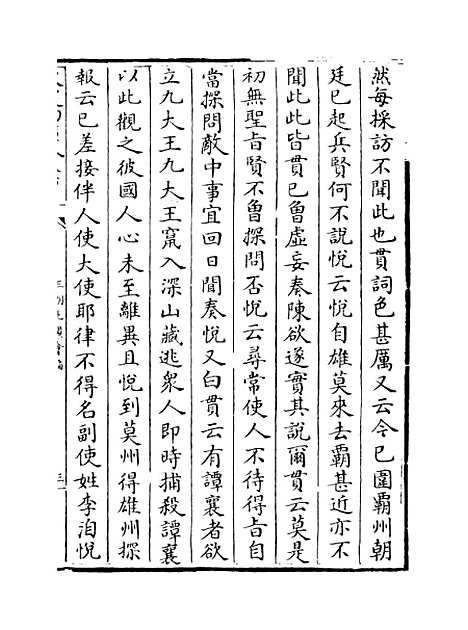 然每採訪不聞此也貫詞色甚厲又云今已圍霸州朝
廷已起兵賢何不說悅云悅自雄莫來去霸甚近亦不
聞此此皆貫已曾虛妄奏陳欲遂實其說爾貫云莫是
初無聖旨賢不曾探問否悅云尋常使人不待得旨自
當探問敵中事宜回日聞奏悅又白貫云有譚襄者欲
立九大王九大王竄入深山藏逃衆人即時捕殺譚襄
以此觀之彼國人心未至離異且悅到莫州得雄州探
報云已差接伴人使大使耶律不得名副使姓李洎悅
三朝北盟會編